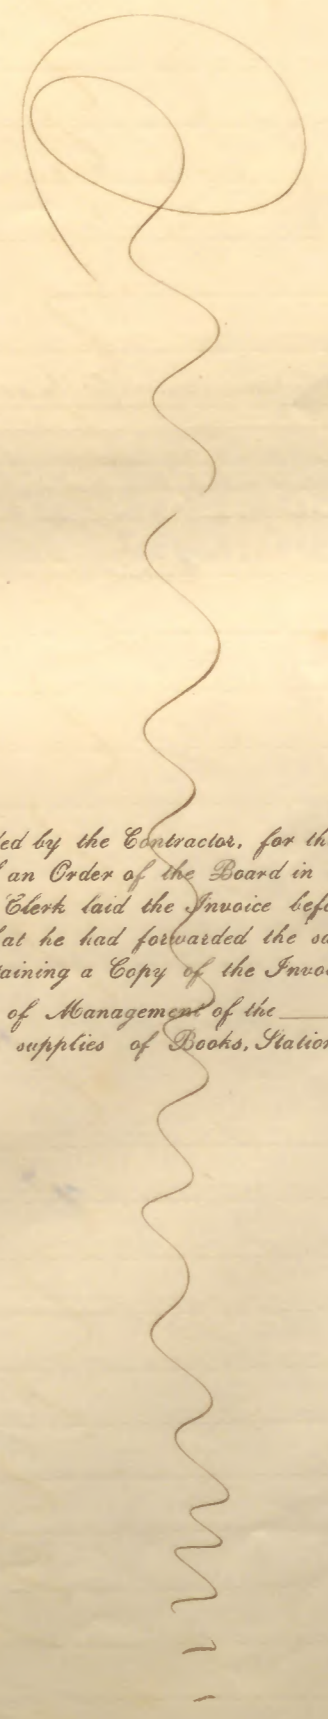 ded by the Contractor, for th
f an Order of the Board in
Clerk laid the Invoice befo
hat he had forwarded the sa
taining a Copy of the Invoi
of Management of the
supplies of Books, Station